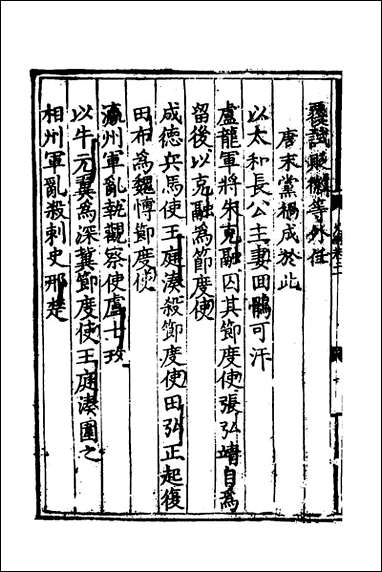 覆試黜徽等外任
唐末黨禍成於此
以太和長公主妻回鶻可汗
盧龍軍將朱克融囚其節度使張弘靖自爲
留後以克融爲節度使
成德兵馬使王庭湊殺節度使田弘正起復
田布爲魏博節度使
瀛州軍亂執觀察使盧士玫
以牛元翼爲深冀節度使王庭湊圍之
相州軍亂殺刺史邢楚